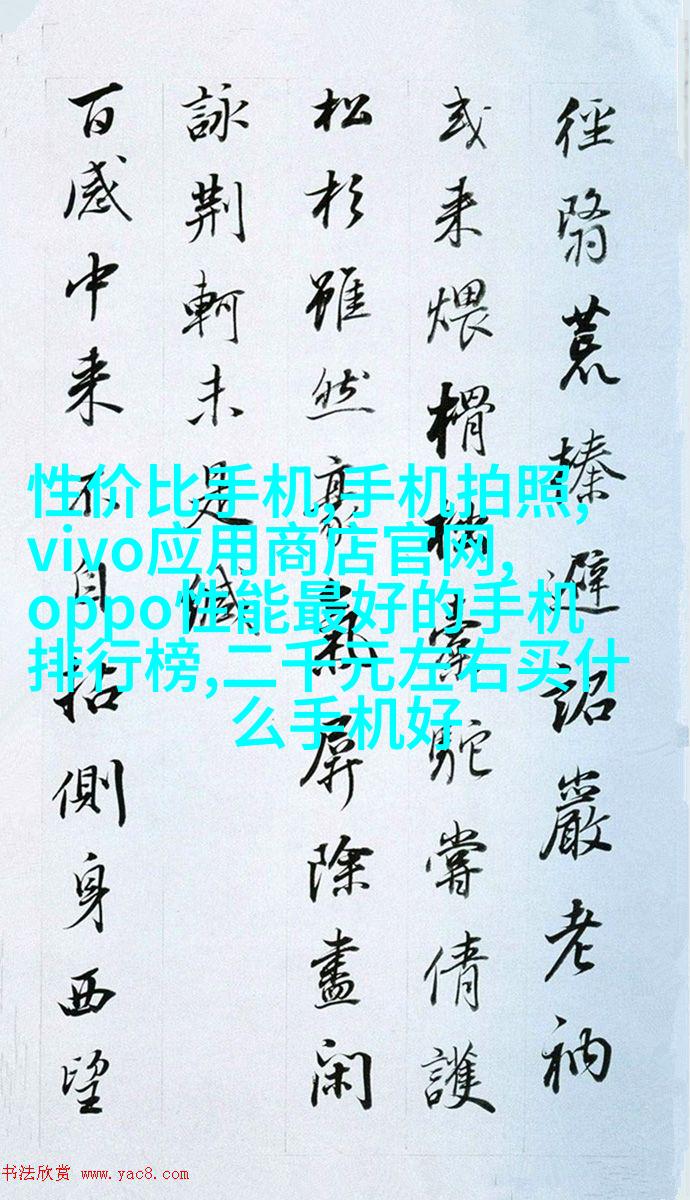 徑翳荒榛避詔巖老衲
或来煨榾柮橐駝嘗倩護
松杉雖然豪氣屏除盡閑
詠荆軻未是緘
百感中来不自側身西望
性价比手机,手机拍照,
vivo应用商店官网,
oppo性能最好的手机
排行榜,二千元左右买什
么手机好
书法欣赏 www.yac8.com